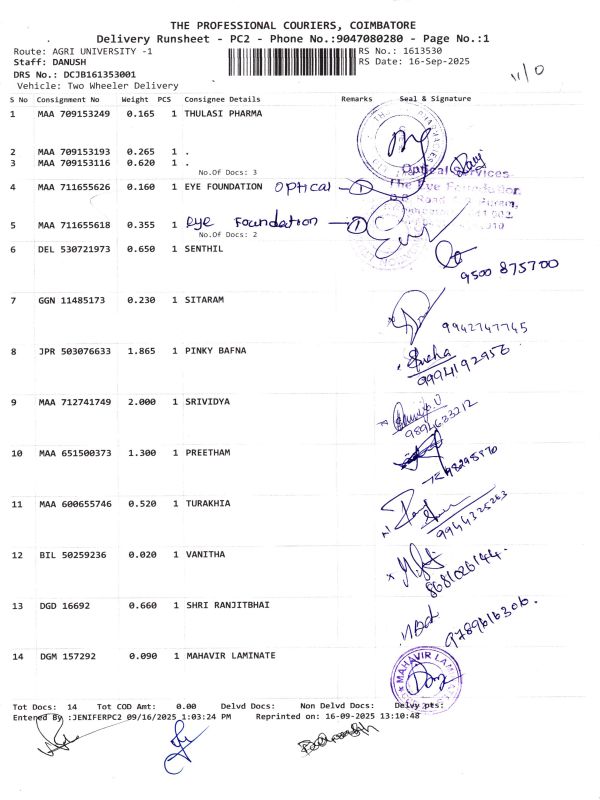 THE PROFESSIONAL COURIERS, COIMBATORE
Delivery Runsheet - PC2 - Phone No.:9047080280 - Page No.:1
Route: AGRI UNIVERSITY -1
RS No.: 1613530
Staff: DANUSH
RS Date: 16-Sep-2025
DRS No.: DCJB161353001
Vehicle: Two Wheeler Delivery
11/0
S No Consignment No Weight PCS Consignee Details Remarks Seal & Signature
1 MAA 709153249 0.165 1 THULASI PHARMA
2 MAA 709153193 0.265 1 .
3 MAA 709153116 0.620 1 .
No.Of Docs: 3
Optical Services
4 MAA 711655626 0.160 1 EYE FOUNDATION OPTICAL - 1
The Eye Foundation,
5 MAA 711655618 0.355 1 eye Foundation - 1
No.Of Docs: 2
6 DEL 530721973 0.650 1 SENTHIL
9500 875700
7 GGN 11485173 0.230 1 SITARAM
9942747745
8 JPR 503076633 1.865 1 PINKY BAFNA
Sucha
9994192956
9 MAA 712741749 2.000 1 SRIVIDYA
9894633212
10 MAA 651500373 1.300 1 PREETHAM
11 MAA 600655746 0.520 1 TURAKHIA
9944325263
12 BIL 50259236 0.020 1 VANITHA
8681026144.
13 DGD 16692 0.660 1 SHRI RANJITBHAI
9789616306.
14 DGM 157292 0.090 1 MAHAVIR LAMINATE
MAHAVIR LAM
Tot Docs: 14 Tot COD Amt: 0.00 Delvd Docs: Non Delvd Docs: Delvy pts:
Entered By :JENIFERPC2 09/16/2025 1:03:24 PM Reprinted on: 16-09-2025 13:10:48